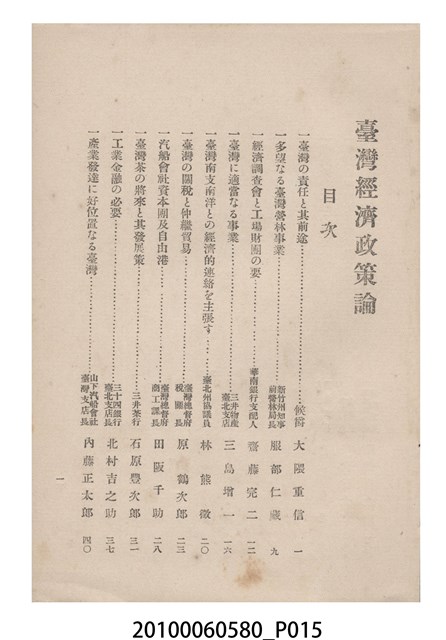 臺灣經濟政策論
目次
一臺灣の責任と其前途……候爵 大隈重信 一
一多望なる臺灣營林事業……新竹州知事 前營林局長 服部仁藏 九
一經濟調查會と工場財團の要……華南銀行支配人 齋藤完二 一二
一臺灣に適當なる事業……三井物產 臺北支店 三島增一 一六
一臺灣南支南洋との經濟的連絡を主張す……臺北州協議員 林熊徵 二〇
一臺灣の關稅と仲繼貿易……臺灣總督府 稅關長 原鶴次郎 二三
一汽船會社資本團及自由港……臺灣總督府 商工課長 田阪千助 二八
一臺灣茶の將來と其發展策……三井茶行 石原豐次郎 三一
一工業金融の必要……三十四銀行 臺北支店長 北村吉之助 三七
一產業發達に好位置なる臺灣……山下汽船會社 臺灣支店長 內藤正太郎 四〇
一
20100060580_P015